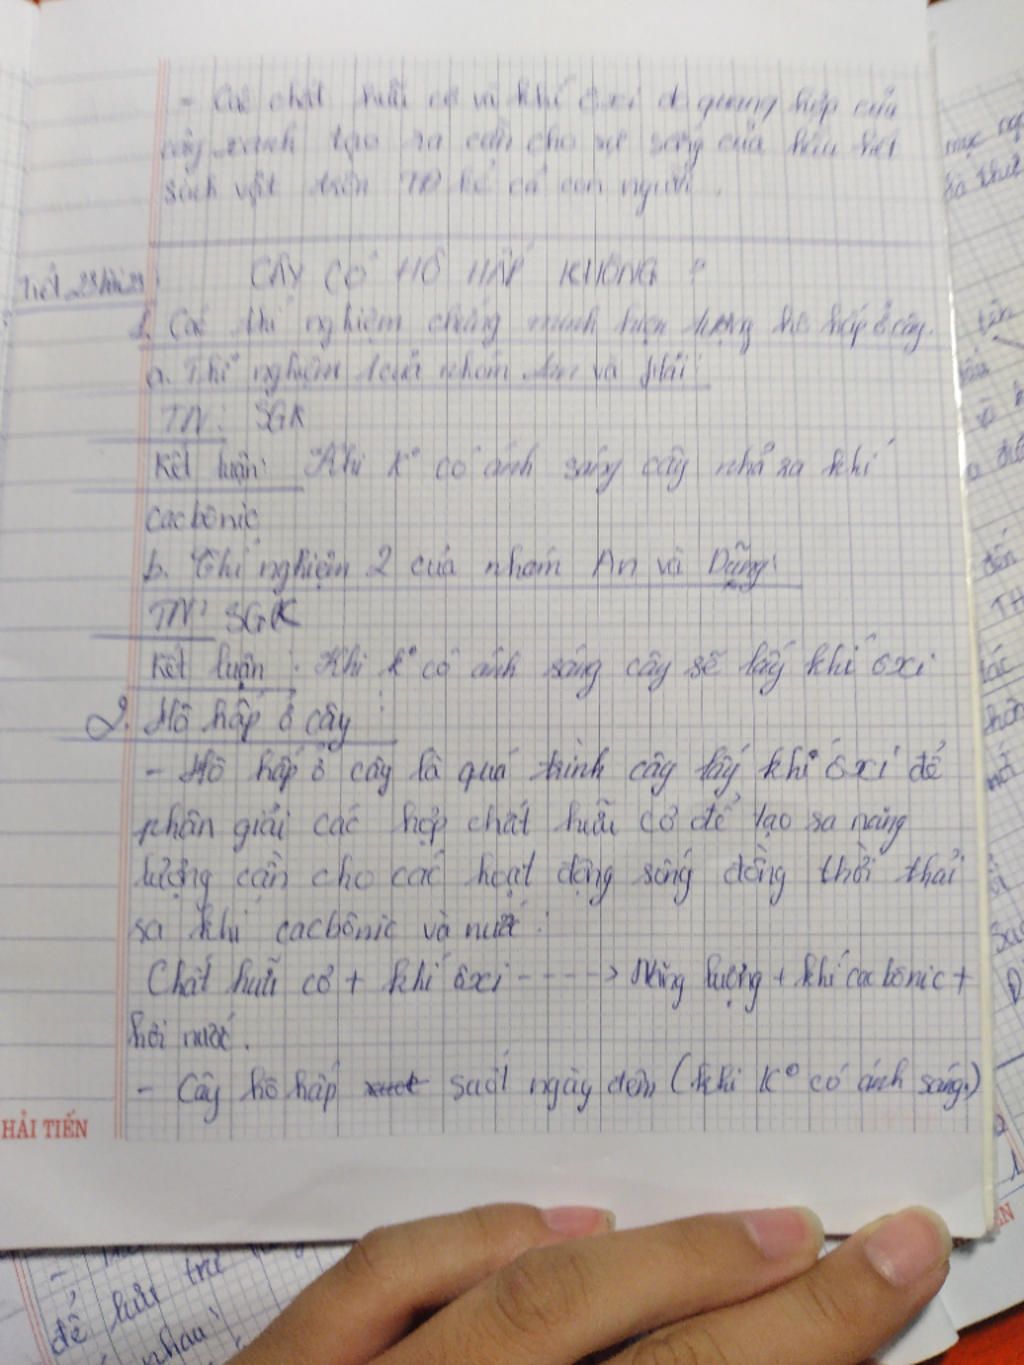 - Các chất hữu cơ và khí ôxi do quang hợp của
cây xanh tạo ra cần cho sự sống của hầu hết
sinh vật trên TĐ kể cả con người.
Tiết 23
CÂY CÓ HÔ HẤP KHÔNG ?
1. Các thí nghiệm chứng minh hiện tượng hô hấp ở cây.
a. Thí nghiệm 1 của nhóm Lan và Hải:
TN: SGK
Kết luận: Khi K° có ánh sáng cây nhả ra khí
cacbônic
b. Thí nghiệm 2 của nhóm An và Dũng:
TN: SGK
Kết luận: Khi K° có ánh sáng cây sẽ lấy khí ôxi
2. Hô hấp ở cây:
- Hô hấp ở cây là quá trình cây lấy khí ôxi để
phân giải các hợp chất hữu cơ để tạo sa năng
lượng cần cho các hoạt động sống đồng thời thải
sa khí cacbônic và nước:
Chất hữu cơ + khí ôxi ----> Năng lượng + khí cacbônic +
hơi nước.
- Cây hô hấp suốt ngày đêm (khi K° có ánh sáng.)
HẢI TIẾN
để lưu trữ
nhau